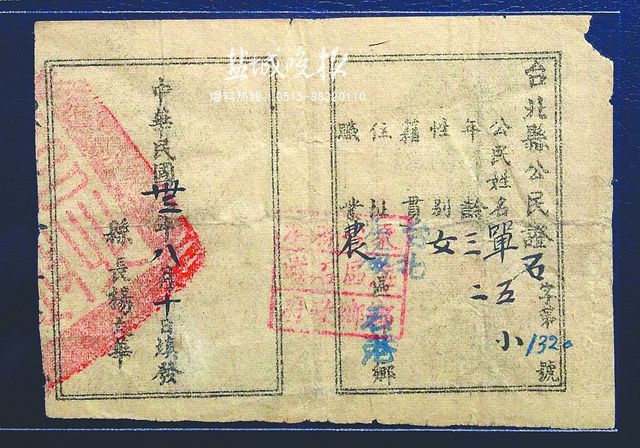 盐城晚报
爆料热线：0515-88320110
台北縣公民證石字第1320號
公民姓名單五小
年齡三二
性別女
籍貫台北
住址區石港鄉
職業農
中華民國卅三年八月十日填發
縣長楊華